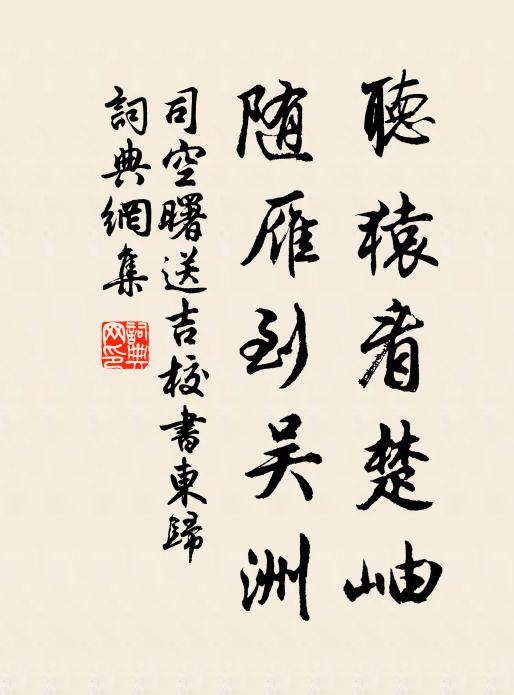 聽猿看楚岫
随雁到吴洲
司空曙送吉校書東歸
詞典網集
詞典网印